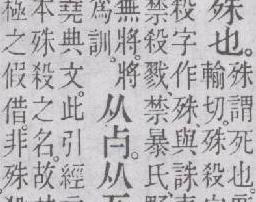 殊也。
殊謂死也。
輸切。殊殺
殺字作殊。與誅
禁殺戮、禁暴氏、野
無將。將
為訓。
从歺。从
堯典文。此引經
本殊殺之名。故
極之假借。非殊